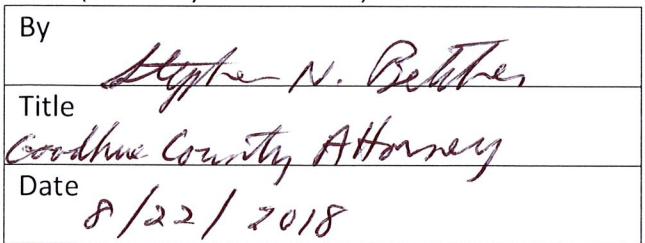 By
Stephen N. Betcher
Title
Goodhue County Attorney
Date
8/22/2018